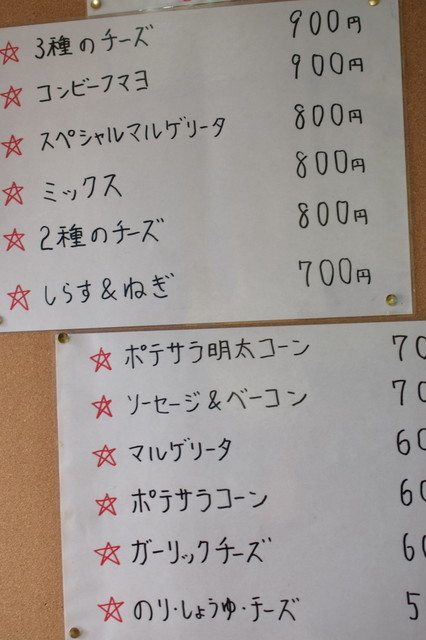 ☆ 3種のチーズ 900円
☆ コンビーフマヨ 900円
☆ スペシャルマルゲリータ 800円
☆ ミックス 800円
☆ 2種のチーズ 800円
☆ しらす&ねぎ 700円
☆ ポテサラ明太コーン 70
☆ ソーセージ&ベーコン 70
☆ マルゲリータ 60
☆ ポテサラコーン 60
☆ ガーリックチーズ 60
☆ のり・しょうゆ・チーズ 5